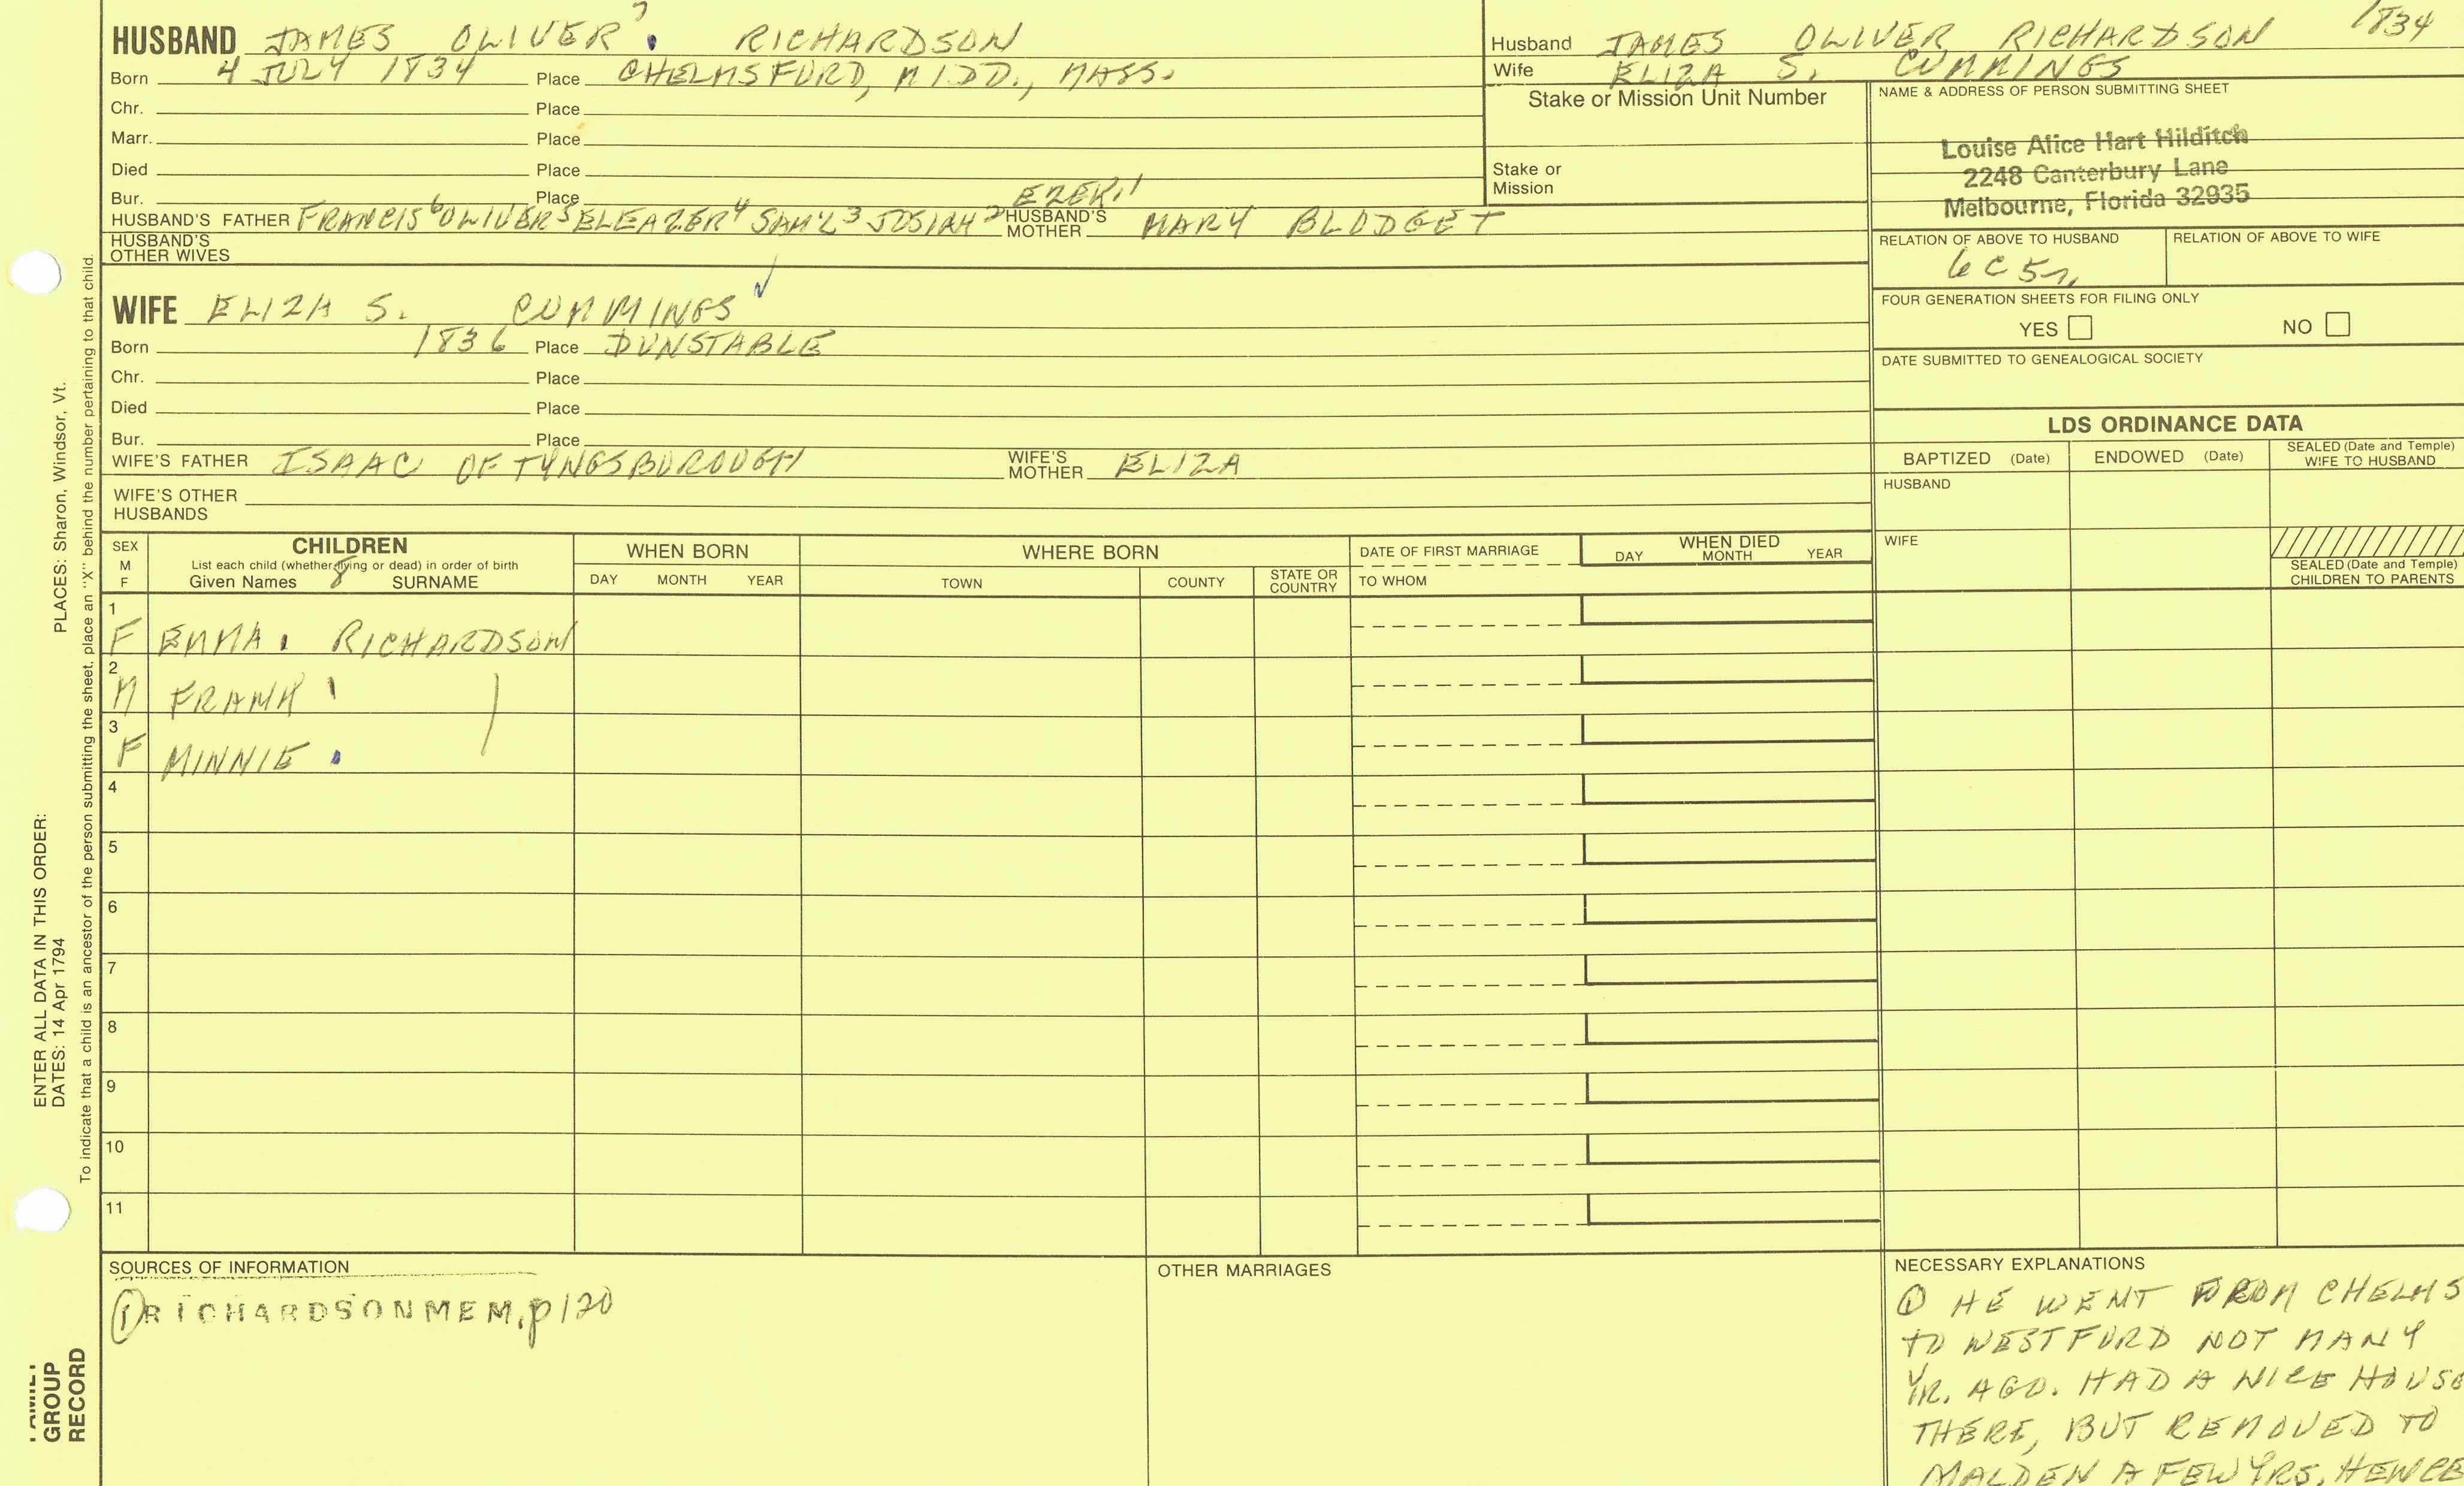 HUSBAND JAMES OLIVER 7 . RICHARDSON
Born 4 JULY 1834 Place CHELMSFORD, MIDD., MASS.
Chr. Place
Marr. Place
Died Place
Bur. Place
HUSBAND'S FATHER FRANCIS 6 OLIVER 5 ELEAZER 4 SAM'L 3 JOSIAH 2 EZEK. 1 HUSBAND'S MOTHER MARY BLODGET
HUSBAND'S OTHER WIVES
WIFE ELIZA S. CUMMINGS ✓
Born 1836 Place DUNSTABLE
Chr. Place
Died Place
Bur. Place
WIFE'S FATHER ISAAC OF TYNGSBOROUGH WIFE'S MOTHER ELIZA
WIFE'S OTHER HUSBANDS
Husband JAMES OLIVER RICHARDSON 1834
Wife ELIZA S. CUMMINGS
Stake or Mission Unit Number
Stake or Mission
NAME & ADDRESS OF PERSON SUBMITTING SHEET
Louise Alice Hart Hilditch
2248 Canterbury Lane
Melbourne, Florida 32935
RELATION OF ABOVE TO HUSBAND RELATION OF ABOVE TO WIFE
6C5
FOUR GENERATION SHEETS FOR FILING ONLY
YES NO
DATE SUBMITTED TO GENEALOGICAL SOCIETY
LDS ORDINANCE DATA
BAPTIZED (Date) ENDOWED (Date) SEALED (Date and Temple) WIFE TO HUSBAND
HUSBAND
WIFE
SEALED (Date and Temple) CHILDREN TO PARENTS
SEX M F
CHILDREN
List each child (whether living or dead) in order of birth
Given Names 8 SURNAME
WHEN BORN
DAY MONTH YEAR
WHERE BORN
TOWN COUNTY STATE OR COUNTRY
DATE OF FIRST MARRIAGE
TO WHOM
WHEN DIED
DAY MONTH YEAR
1 F EMMA . RICHARDSON
2 M FRANK
3 F MINNIE .
4
5
6
7
8
9
10
11
SOURCES OF INFORMATION
① RICHARDSON MEM. p 120
OTHER MARRIAGES
NECESSARY EXPLANATIONS
① HE WENT FROM CHELMS
TO WESTFORD NOT MANY
YR. AGO. HAD A NICE HOUSE
THERE, BUT REMOVED TO
MALDEN A FEW YRS. HENCE
PLACES: Sharon, Windsor, Vt.
To indicate that a child is an ancestor of the person submitting the sheet, place an "X" behind the number pertaining to that child.
ENTER ALL DATA IN THIS ORDER:
DATES: 14 Apr 1794
FAMILY
GROUP
RECORD